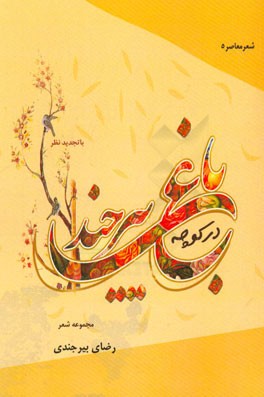 شعرمعاصر ۵
باتجدید نظر
در کوچه باغهای بیرجند
مجموعه شعر
رضای بیرجندی